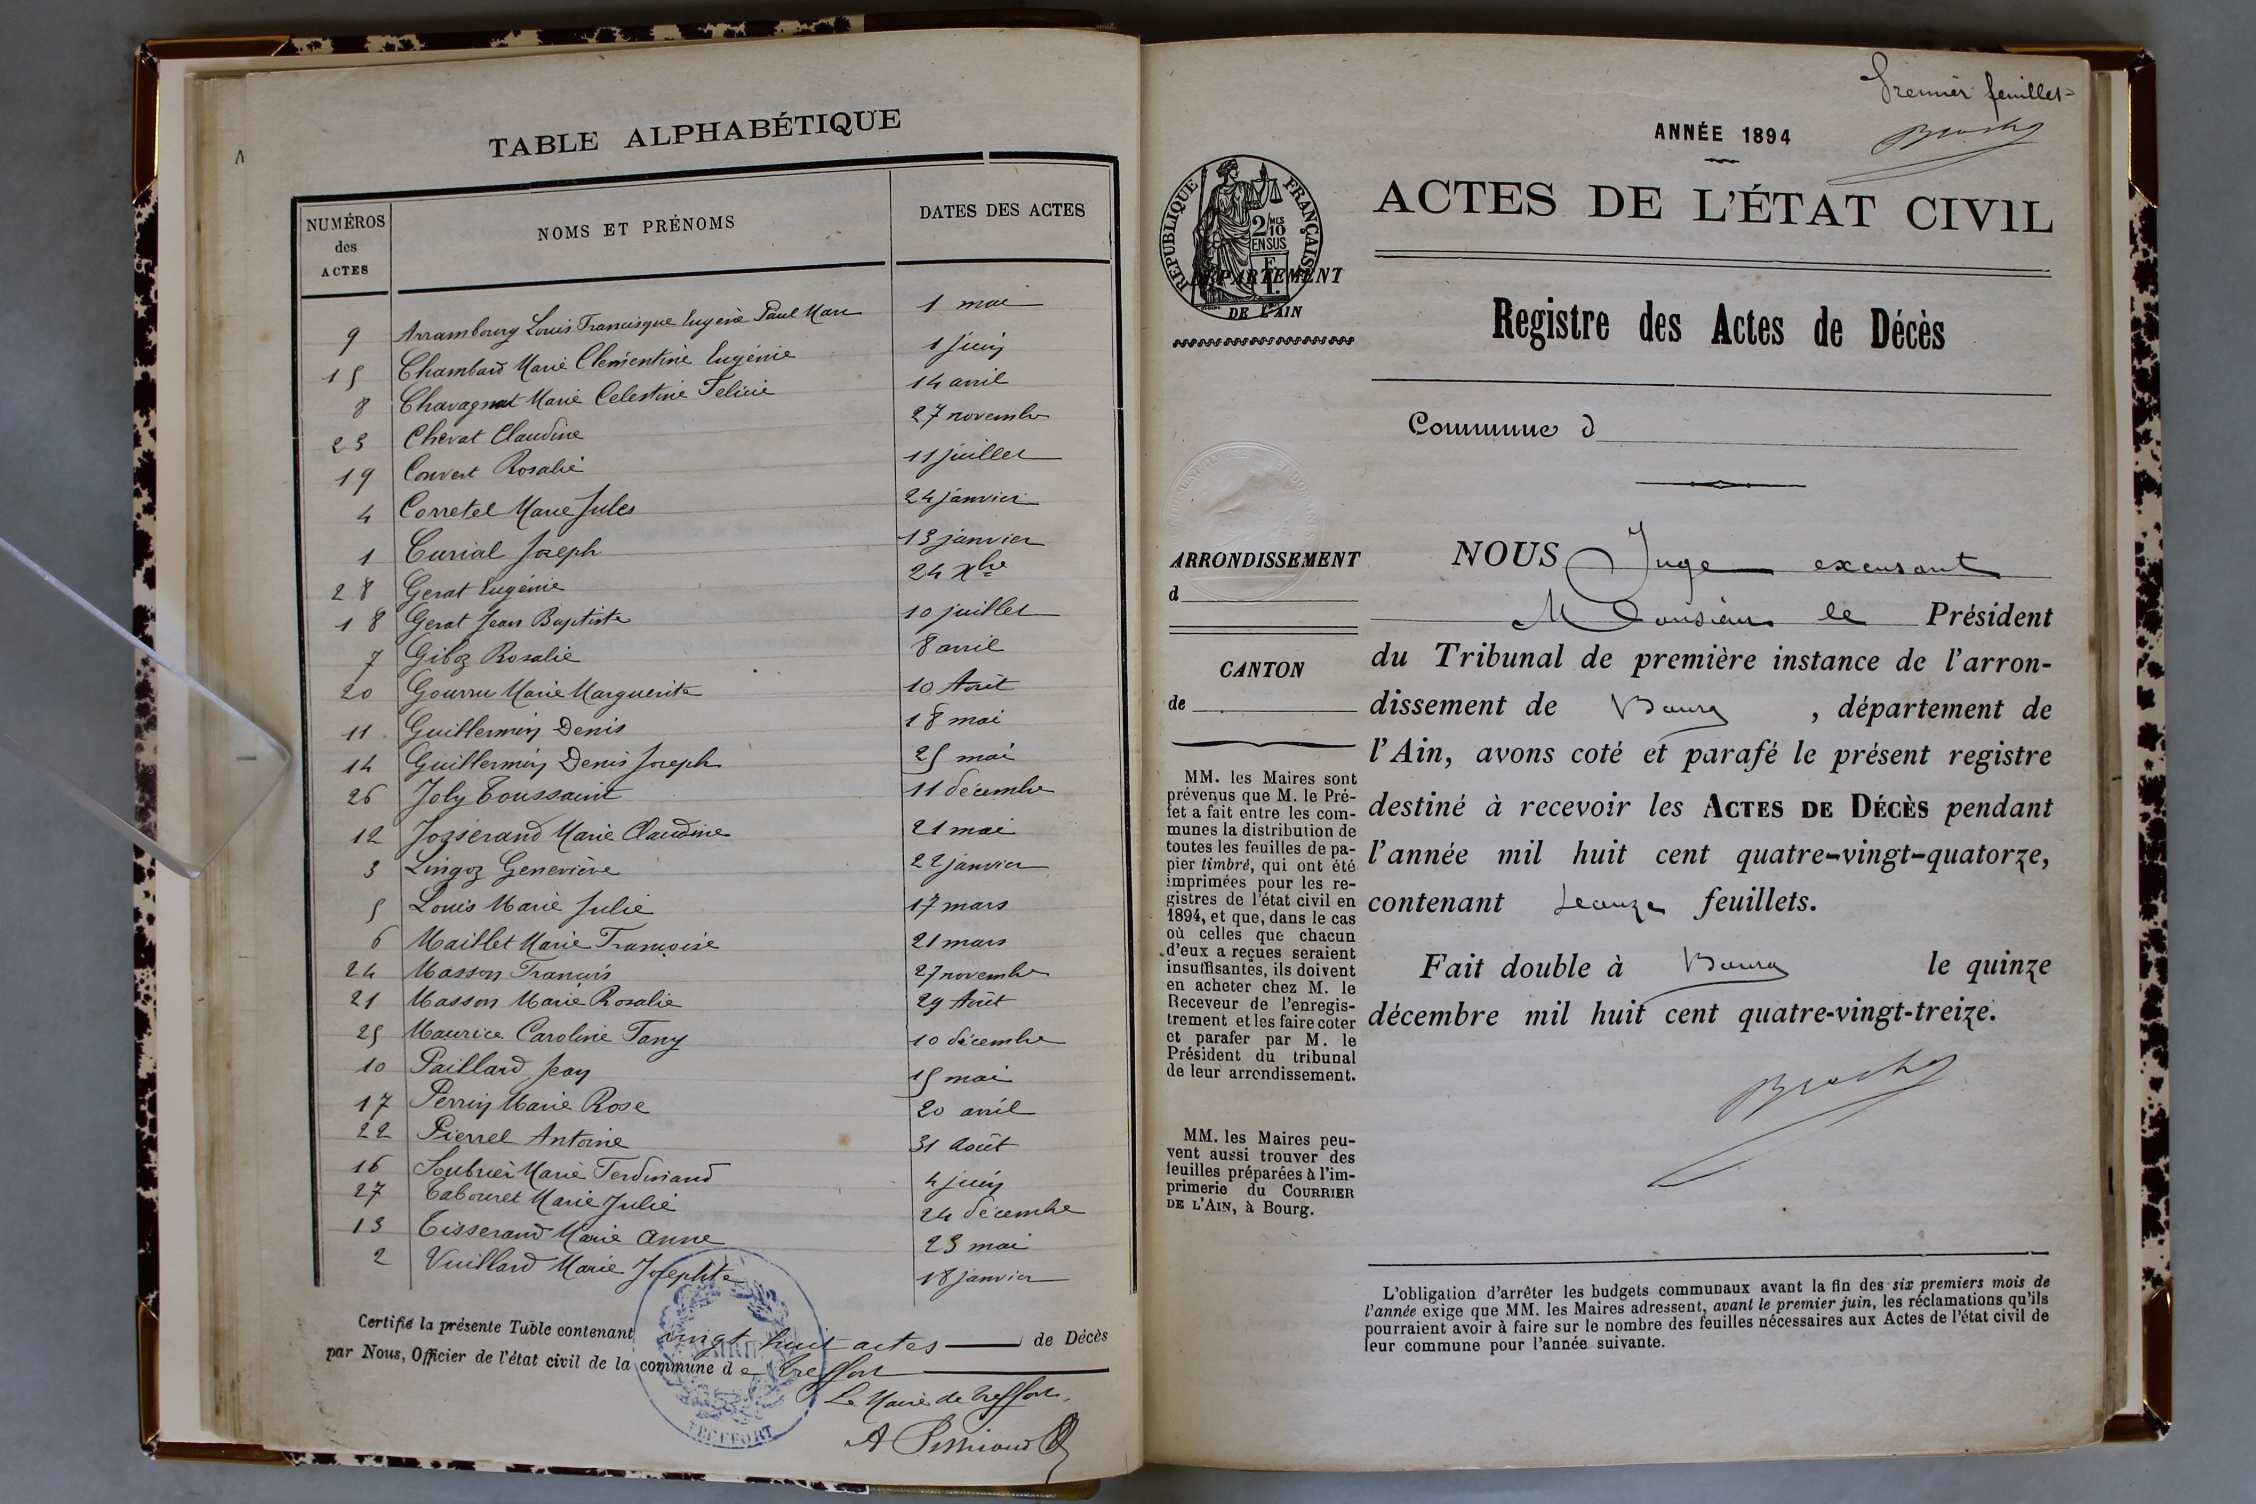 TABLE ALPHABÉTIQUE
NUMÉROS des ACTES
NOMS ET PRÉNOMS
DATES DES ACTES
9 Arrambourg Louis Francisque Eugène Paul Marc 1 mai
15 Chambard Marie Clementine Eugénie 1 juin
8 Chavagnat Marie Celestine Felicie 14 avril
23 Chevat Claudine 27 novembre
19 Convert Rosalie 11 juillet
4 Corretel Marie Jules 24 janvier
1 Curial Joseph 13 janvier
28 Gerat Eugénie 24 Xbre
18 Gerat Jean Baptiste 10 juillet
7 Giboz Rosalie 8 avril
20 Gourru Marie Marguerite 10 Août
11 Guillermin Denis 18 mai
14 Guillermin Denis Joseph 25 mai
26 Joly Toussaint 11 décembre
12 Josserand Marie Claudine 21 mai
3 Lingoz Geneviève 22 janvier
5 Louis Marie Julie 17 mars
6 Maillet Marie Françoise 21 mars
24 Masson François 27 novembre
21 Masson Marie Rosalie 29 Août
25 Maurice Caroline Fany 10 décembre
10 Paillard Jean 15 mai
17 Perrin Marie Rose 20 avril
22 Pierrel Antoine 31 Août
16 Soubrier Marie Ferdinand 4 juin
27 Tabouret Marie Julie 24 décembre
13 Tisserand Marie Anne 23 mai
2 Vuillard Marie Josephte 18 janvier
Certifié la présente Table contenant vingt huit actes de Décès
par Nous, Officier de l'état civil de la commune de Treffort
MAIRIE
TREFFORT
Le Maire de Treffort
Premier feuillet
ANNÉE 1894
ACTES DE L'ÉTAT CIVIL
RÉPUBLIQUE FRANÇAISE
2/10 MES
EN SUS
DÉPARTEMENT
DE L'AIN
Registre des Actes de Décès
Commune d
ARRONDISSEMENT
d
CANTON
de
MM. les Maires sont
prévenus que M. le Pré-
fet a fait entre les com-
munes la distribution de
toutes les feuilles de pa-
pier timbré, qui ont été
imprimées pour les re-
gistres de l'état civil en
1894, et que, dans le cas
où celles que chacun
d'eux a reçues seraient
insuffisantes, ils doivent
en acheter chez M. le
Receveur de l'enregis-
trement et les faire coter
et parafer par M. le
Président du tribunal
de leur arrondissement.
MM. les Maires peu-
vent aussi trouver des
feuilles préparées à l'im-
primerie du COURRIER
DE L'AIN, à Bourg.
NOUS Juge excusant
Monsieur le Président
du Tribunal de première instance de l'arron-
dissement de Bourg, département de
l'Ain, avons coté et parafé le présent registre
destiné à recevoir les ACTES DE DÉCÈS pendant
l'année mil huit cent quatre-vingt-quatorze,
contenant feuillets.
Fait double à Bourg le quinze
décembre mil huit cent quatre-vingt-treize.
L'obligation d'arrêter les budgets communaux avant la fin des six premiers mois de
l'année exige que MM. les Maires adressent, avant le premier juin, les réclamations qu'ils
pourraient avoir à faire sur le nombre des feuilles nécessaires aux Actes de l'état civil de
leur commune pour l'année suivante.